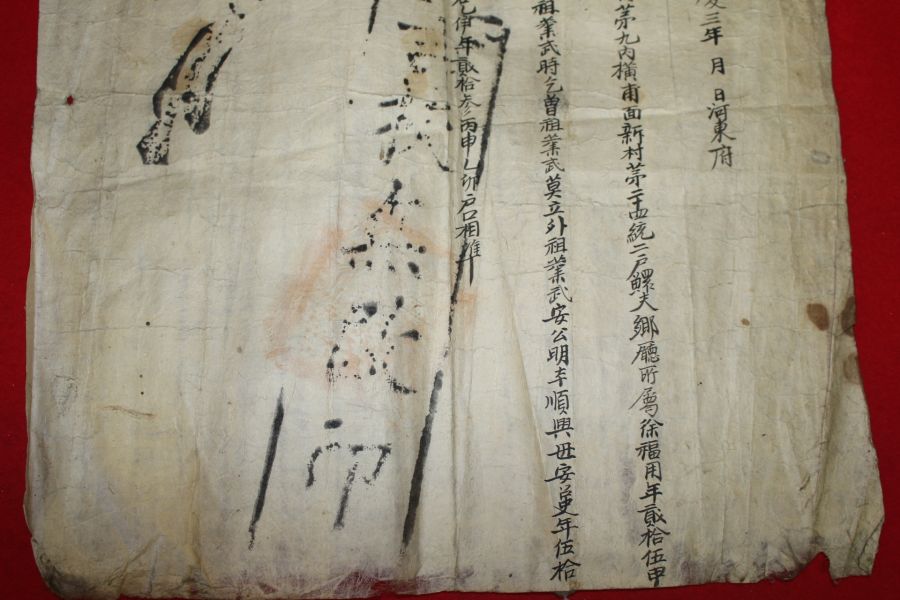 三年 月 日河東府
第九內橫甫面新村第二十四統二戶鰥夫鄕廳所屬徐福用年貳拾伍申
祖業武時乞曾祖業武莫立外祖業武安公明本順興母安 年伍拾
伊年貳拾參丙申乙卯戶口相準
印